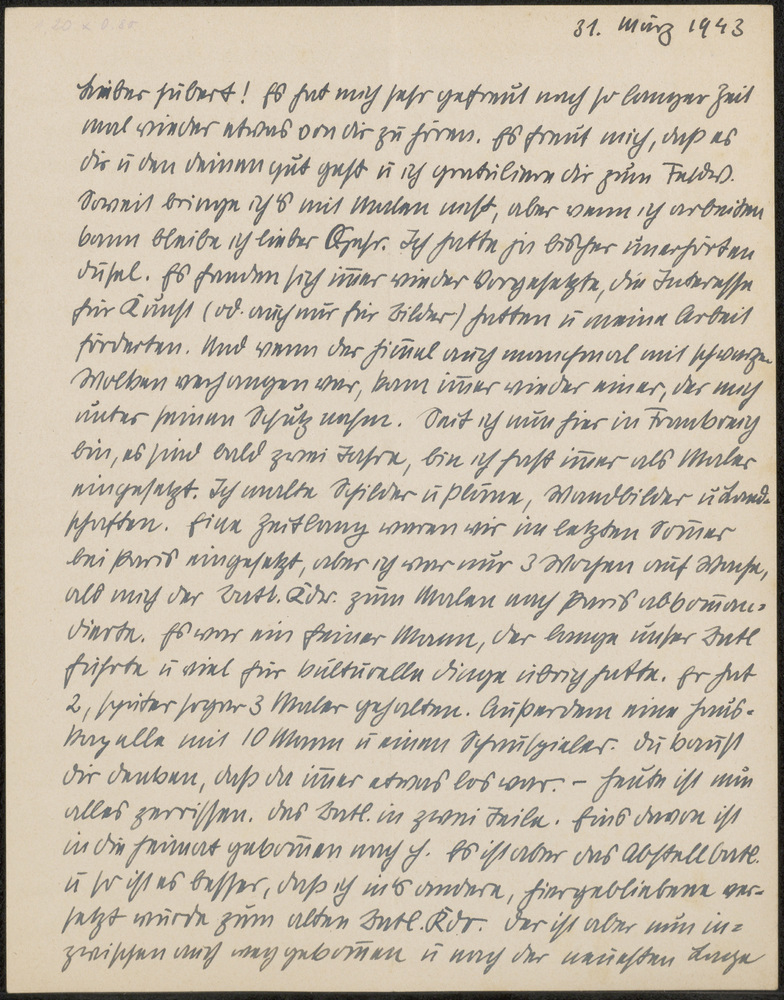 31. März 1943
Lieber Hubert! Es hat mich sehr gefreut nach so langer Zeit
mal wieder etwas von dir zu hören. Es freut mich, daß es
dir u den deinen gut geht u ich gratuliere dir zum Feldw.
Soweit bringe ich's mit Malen nicht, aber wenn ich arbeiten
kann bleibe ich lieber Gefr. Ich hatte ja bisher unerhörten
Dusel. Es fanden sich im̅er wieder Vorgesetzte, die Interesse
für Kunst (od. auch nur für Bilder) hatten u meine Arbeit
förderten. Und wenn der Him̅el auch manchmal mit schwarzen
Wolken verhangen war, kam im̅er wieder einer, der mich
unter seinen Schutz nahm. Seit ich nun hier in Frankreich
bin, es sind bald zwei Jahre, bin ich fast im̅er als Maler
eingesetzt. Ich malte Schilder u Pläne, Wandbilder u Land-
schaften. Eine Zeitlang waren wir im letzten Som̅er
bei Paris eingesetzt, aber ich war nur 3 Wochen auf Wache,
als mich der Batl. Kdr. zum Malen nach Paris abkom̅an-
dierte. Es war ein feiner Mann, der lange unser Batl
führte u viel für kulturelle Dinge übrig hatte. Er hat
2, später sogar 3 Maler gehalten. Außerdem eine Haus-
kapelle mit 10 Mann u einen Schauspieler. Du kannst
dir denken, daß da im̅er etwas los war. – Heute ist nun
alles zerrissen. Das Batl. in zwei Teile. Eins davon ist
in die Heimat gekom̅en nach H. Es ist aber das Abstellbatl.
u so ist es besser, daß ich ins andere, hiergebliebene ver-
setzt wurde zum alten Batl. Kdr. Der ist aber nun in-
zwischen auch weggekom̅en u nach der neuesten Lage